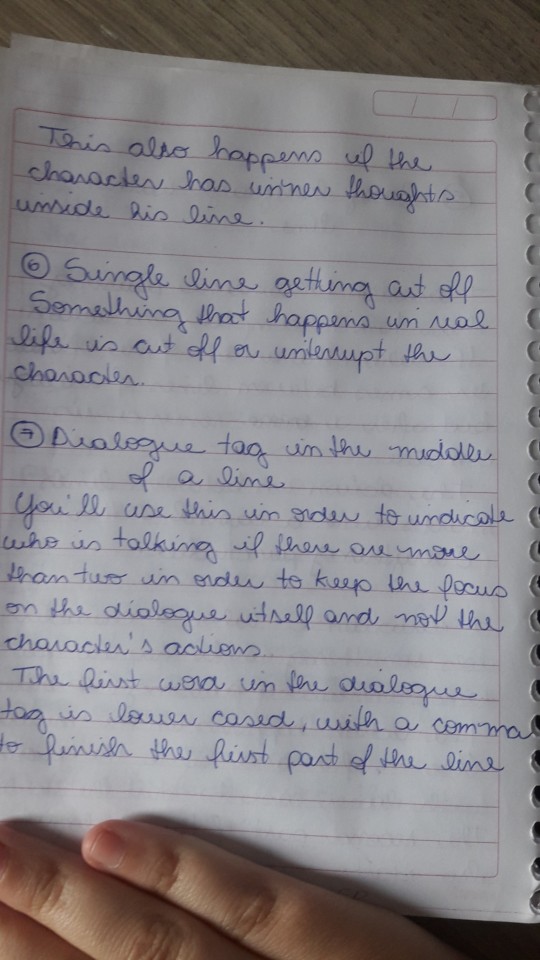 This also happens if the
character has inner thoughts
inside his line.
⑥ Single line getting cut off
Something that happens in real
life is cut off or interrupt the
character.
⑦ Dialogue tag in the middle
of a line
You'll use this in order to indicate
who is talking if there are more
than two in order to keep the focus
on the dialogue itself and not the
character's actions.
The first word in the dialogue
tag is lower cased, with a comma
to finish the first part of the line